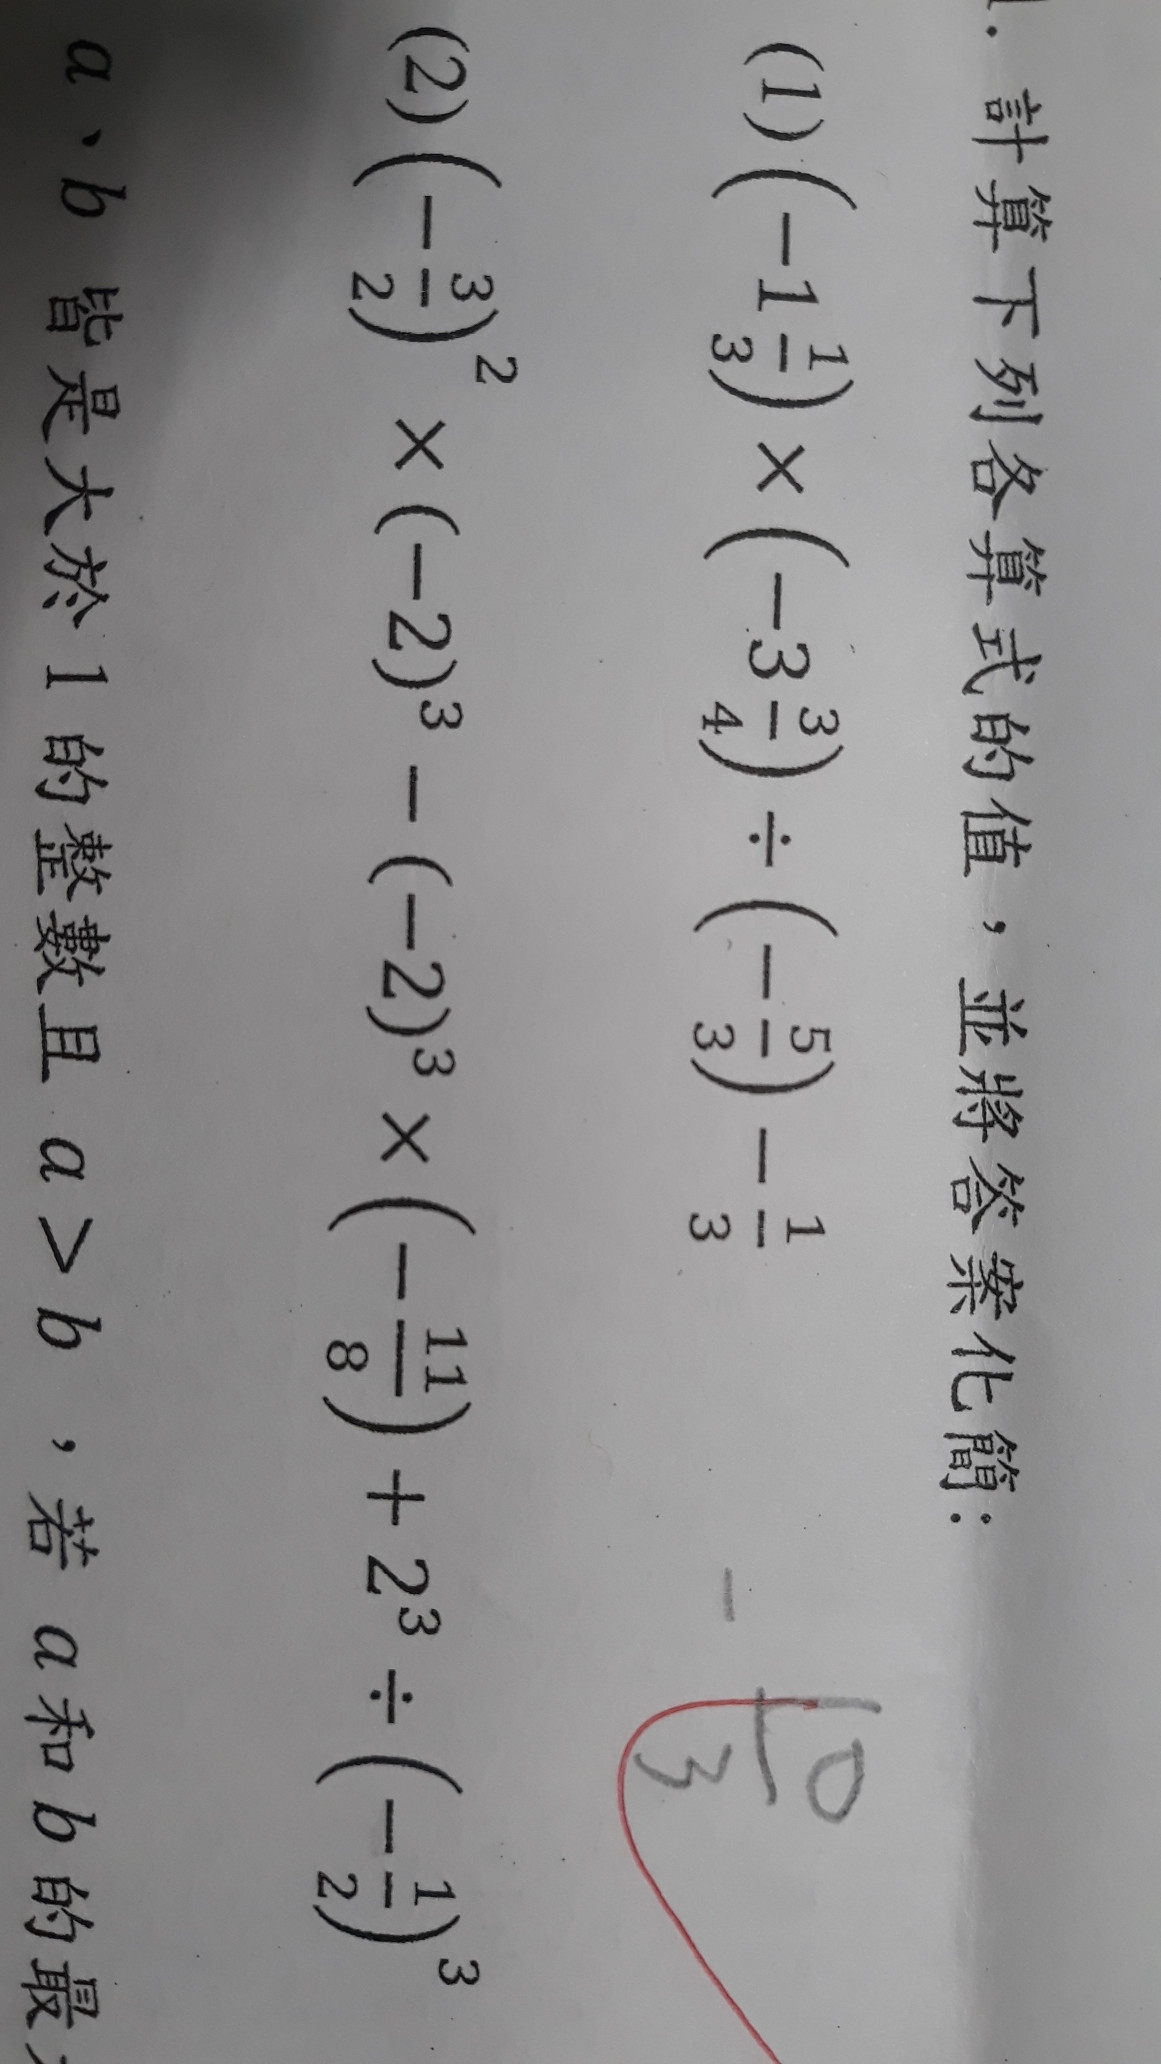 1. 計算下列各算式的值，並將答案化簡：
(1) (-1 1/3) × (-3 3/4) ÷ (-5/3) - 1/3
- 10/3
(2) (-3/2)² × (-2)³ - (-2)³ × (-11/8) + 2³ ÷ (-1/2)³
a、b 皆是大於 1 的整數且 a > b，若 a 和 b 的最